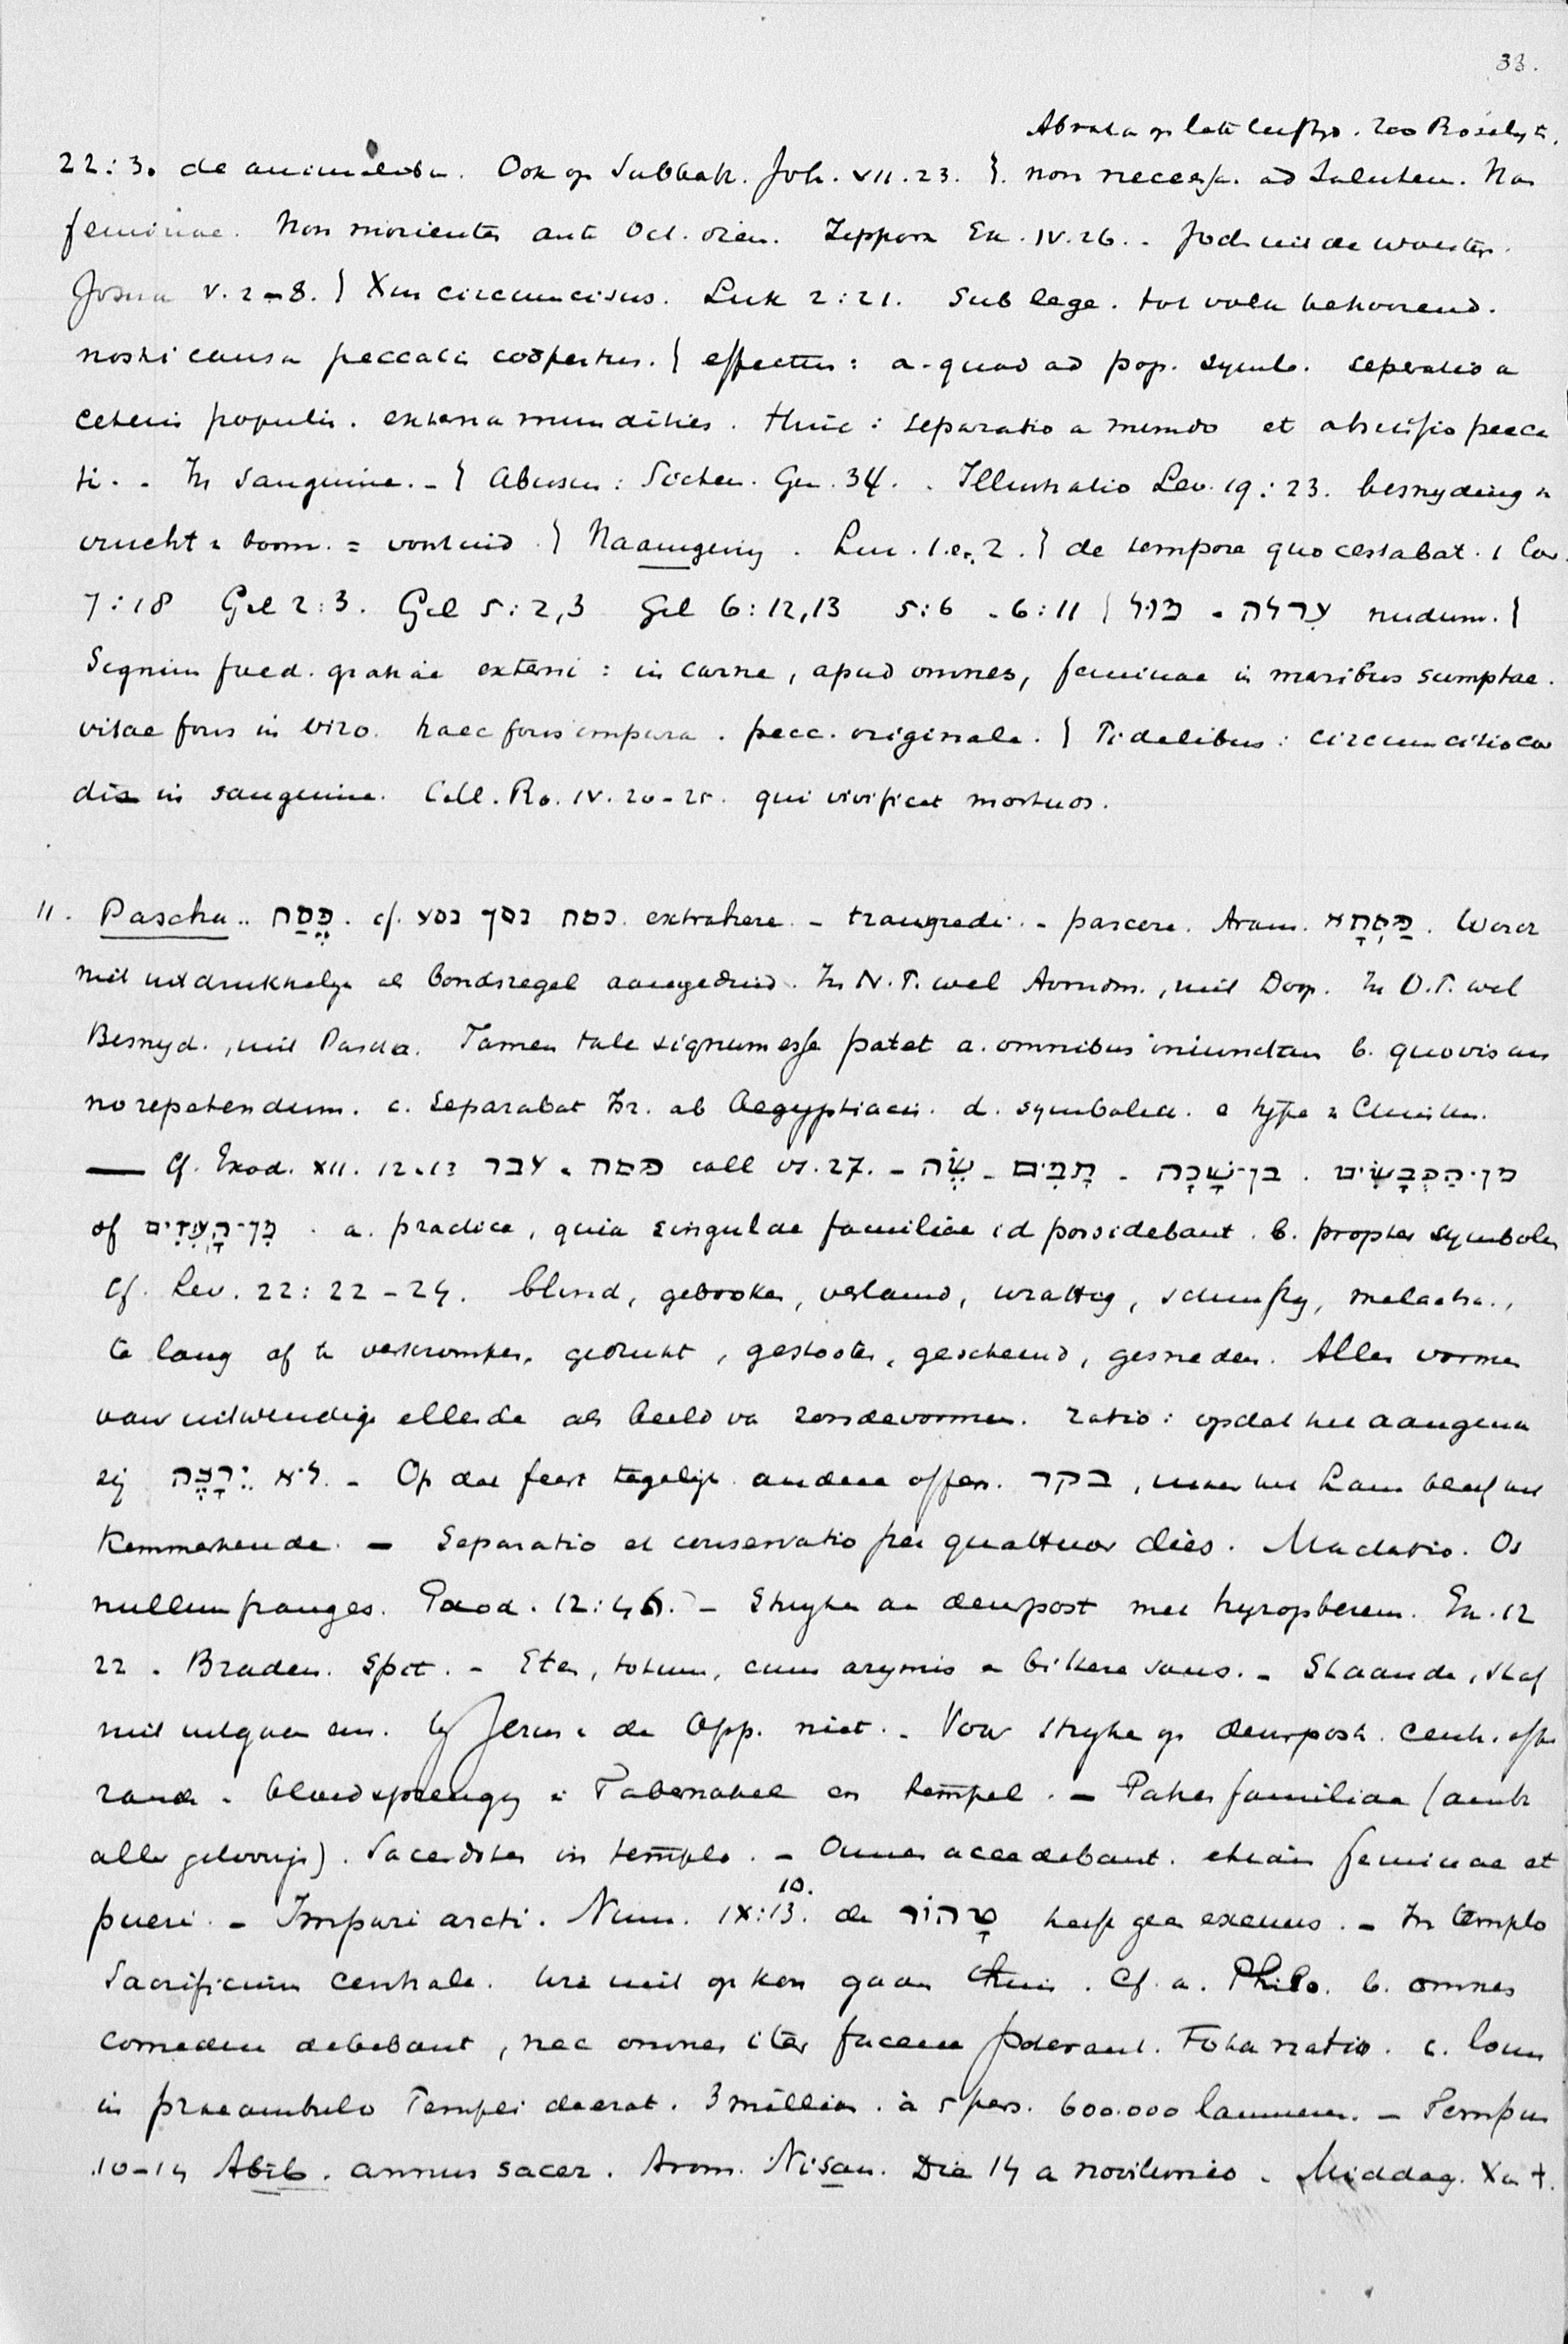 33.
Abraha op late leeftyd. Zoo Proselyt.
22:30 de animalibu. Ook op Sabbath. Joh. VII.23. }. non necess. ad Salutem. Non
feminae. Non morientes ante Oct. diem. Zippora Ex. IV.26. - Joden uit de woestyn.
Josua V.2-8. } Xus circumcisus. Luk 2:21. Sub lege. tot volk behoorend.
nostri causa peccatis coopertus. } effectus: a. quod ad pop. symb. seperatio a
ceteris populis. externa mundities. Huic: Separatio a mundo et abscissio pecca
ti. - In Sanguine. - } Abusus: Sichem. Gen. 34. - Illustratio Lev. 19:23. besnyding v
vrucht v boom. = voorhuid. } Naamgeving. Luc. 1 en 2. } de tempore quo cessabat. 1 Cor.
7:18 Gal 2:3. Gal 5:2,3 Gal 6:12,13 5:6 - 6:11 } מול - ערלה nudum. }
Signum foed. gratiae externi: in carne, apud omnes, feminae in maribus sumptae.
vitae fons in viro. haec fons impura. pecc. originale. } Fidelibus: circumcisio cor
dis in sanguine. Coll. Ro. IV.20-25. qui vivificat mortuos.
11. Pascha.. פֶּסַח. cf. פסח פסך פסע extrahere. - transgredi. - parcere. Aram. פַּסְחָא. Werd
niet uitdrukkelyk als bondszegel aangeduid. In N.T. wel Avondm., niet Doop. In O.T. wel
Besnyd., niet Pascha. Tamen tale signum esse patet a. omnibus iniunctum b. quovis an
no repetendum. c. Separabat Isr. ab Aegyptiacis. d. symbolica. e type v Christus.
— Cf. Exod. XII. 12-13 עבר - פסח coll vs. 27. - שֶׂה - תָמִים - בן־שָׁנָה . מן־הַכְּבָשִׂים
of מִן־הָעִזִּים . a. practice, quia singulae familiae id possidebant. b. propter symbolen
Cf. Lev. 22:22-24. blind, gebroken, verlamd, wrattig, schurftig, melaatsch.,
te lang of te verkrompen, gedrukt, gestooten, gescheurd, gesneden. Alles vormen
van uitwendige ellende als beeld van zondevormen. ratio: opdat het aangenaam
zij לֹא יֵרָצֶה. - Op dat feest tegelijk andere offers. בקר, maar het Lam bleef het
Kenmerkende. - Separatio et conservatio per quattuor dies. Mactatio. Os
nullum franges. Exod. 12:46. - Stryken aan deurpost met hysopberem. Ex. 12
22. Braden. Spit. - Eten, totum, cum azymis en bittere saus. - Staande, staf
niet uitgaan enz. by Jezus en de App. niet. - Voor stryken op deurpost. centr. offe
rande. bloedsprenging in Tabernakel en tempel. - Pater familiae (ambt
aller geloovigen). Sacerdotes in templo. - Omnes accedebant. etiam feminae et
pueri. - Impuri arcti. Num. IX:13. 10. de טָהוֹר heeft geen excuus. - In templo
Sacrificium centrale. wie niet op kon gaan thuis. Cf. a. Philo. b. omnes
comedere debebant, nec omnes iter facere poterant. Tota natio. c. locus
in praeambulo Templi deerat. 3 million. à 5 pers. 600.000 lammeren. - Tempus
10-14 Abib. annus sacer. Arom. Nisan. Die 14 a novilunio. Middag. Xu †.